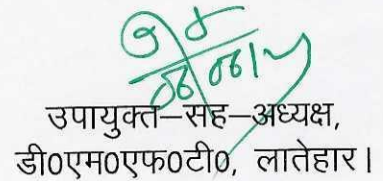 उपायुक्त–सह–अध्यक्ष,
डी0एम0एफ0टी0, लातेहार।